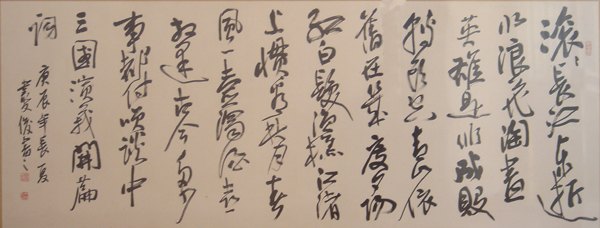 滾滾長江東逝
水浪花淘盡
英雄是非成敗
轉頭空青山依
舊在幾度夕陽
紅白髮漁樵江渚
上慣看秋月春
風一壺濁酒喜
相逢古今多少
事都付笑談中
三國演義開篇
詞
庚辰年長夏